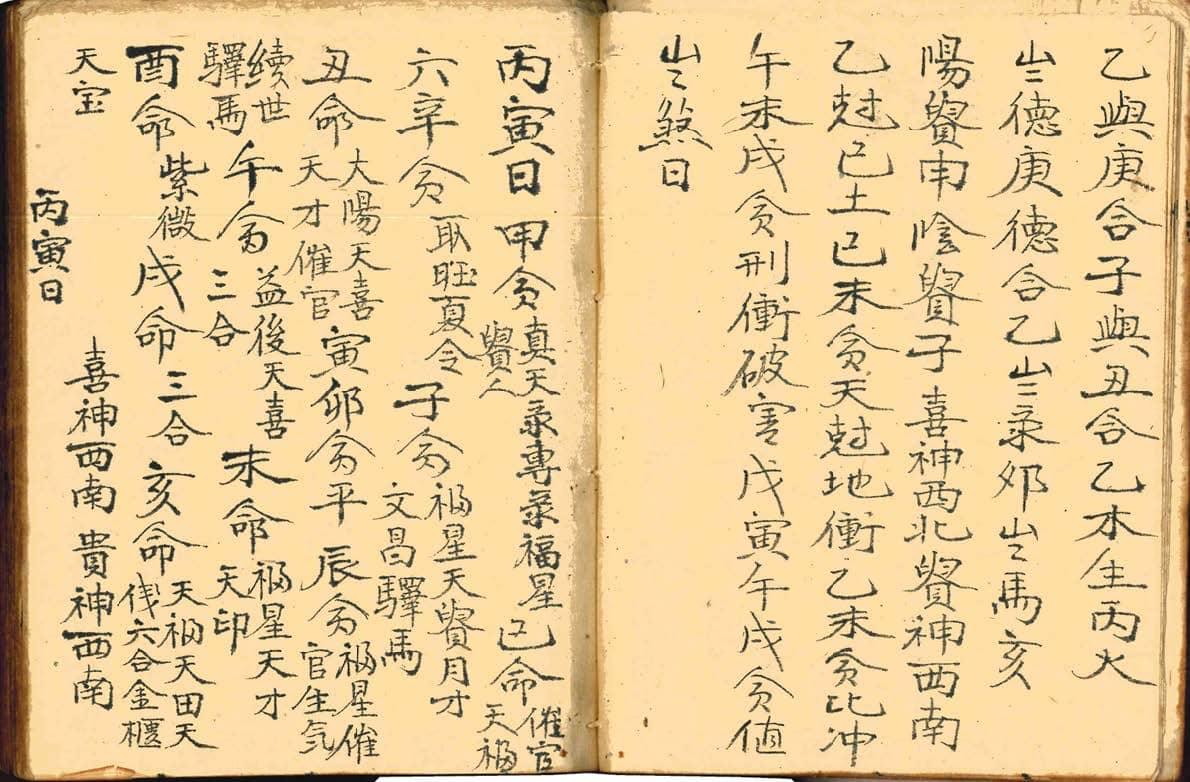 乙與庚合子與丑合乙木生丙火
岁德庚德合乙岁录夘岁馬亥
陽貴南陰貴子喜神西北貴神西南
乙尅己土己未命天尅地衝乙未命比冲
午未戌命刑衝破害戊寅午戌命值
岁煞日
丙寅日 甲命 真天录專录福星貴人 巳命 催官天福
六辛命 取旺夏令 子命 福星天貴月才文昌驛馬
丑命 大陽天喜天才催官 寅卯命平 辰命 福星催官生気
續世驛馬 午命 益後天喜三合 未命 福星天才天印
酉命 紫微 戌命 三合 亥命 天福天田天伐六合金櫃
天宝 喜神西南 貴神西南
丙寅日